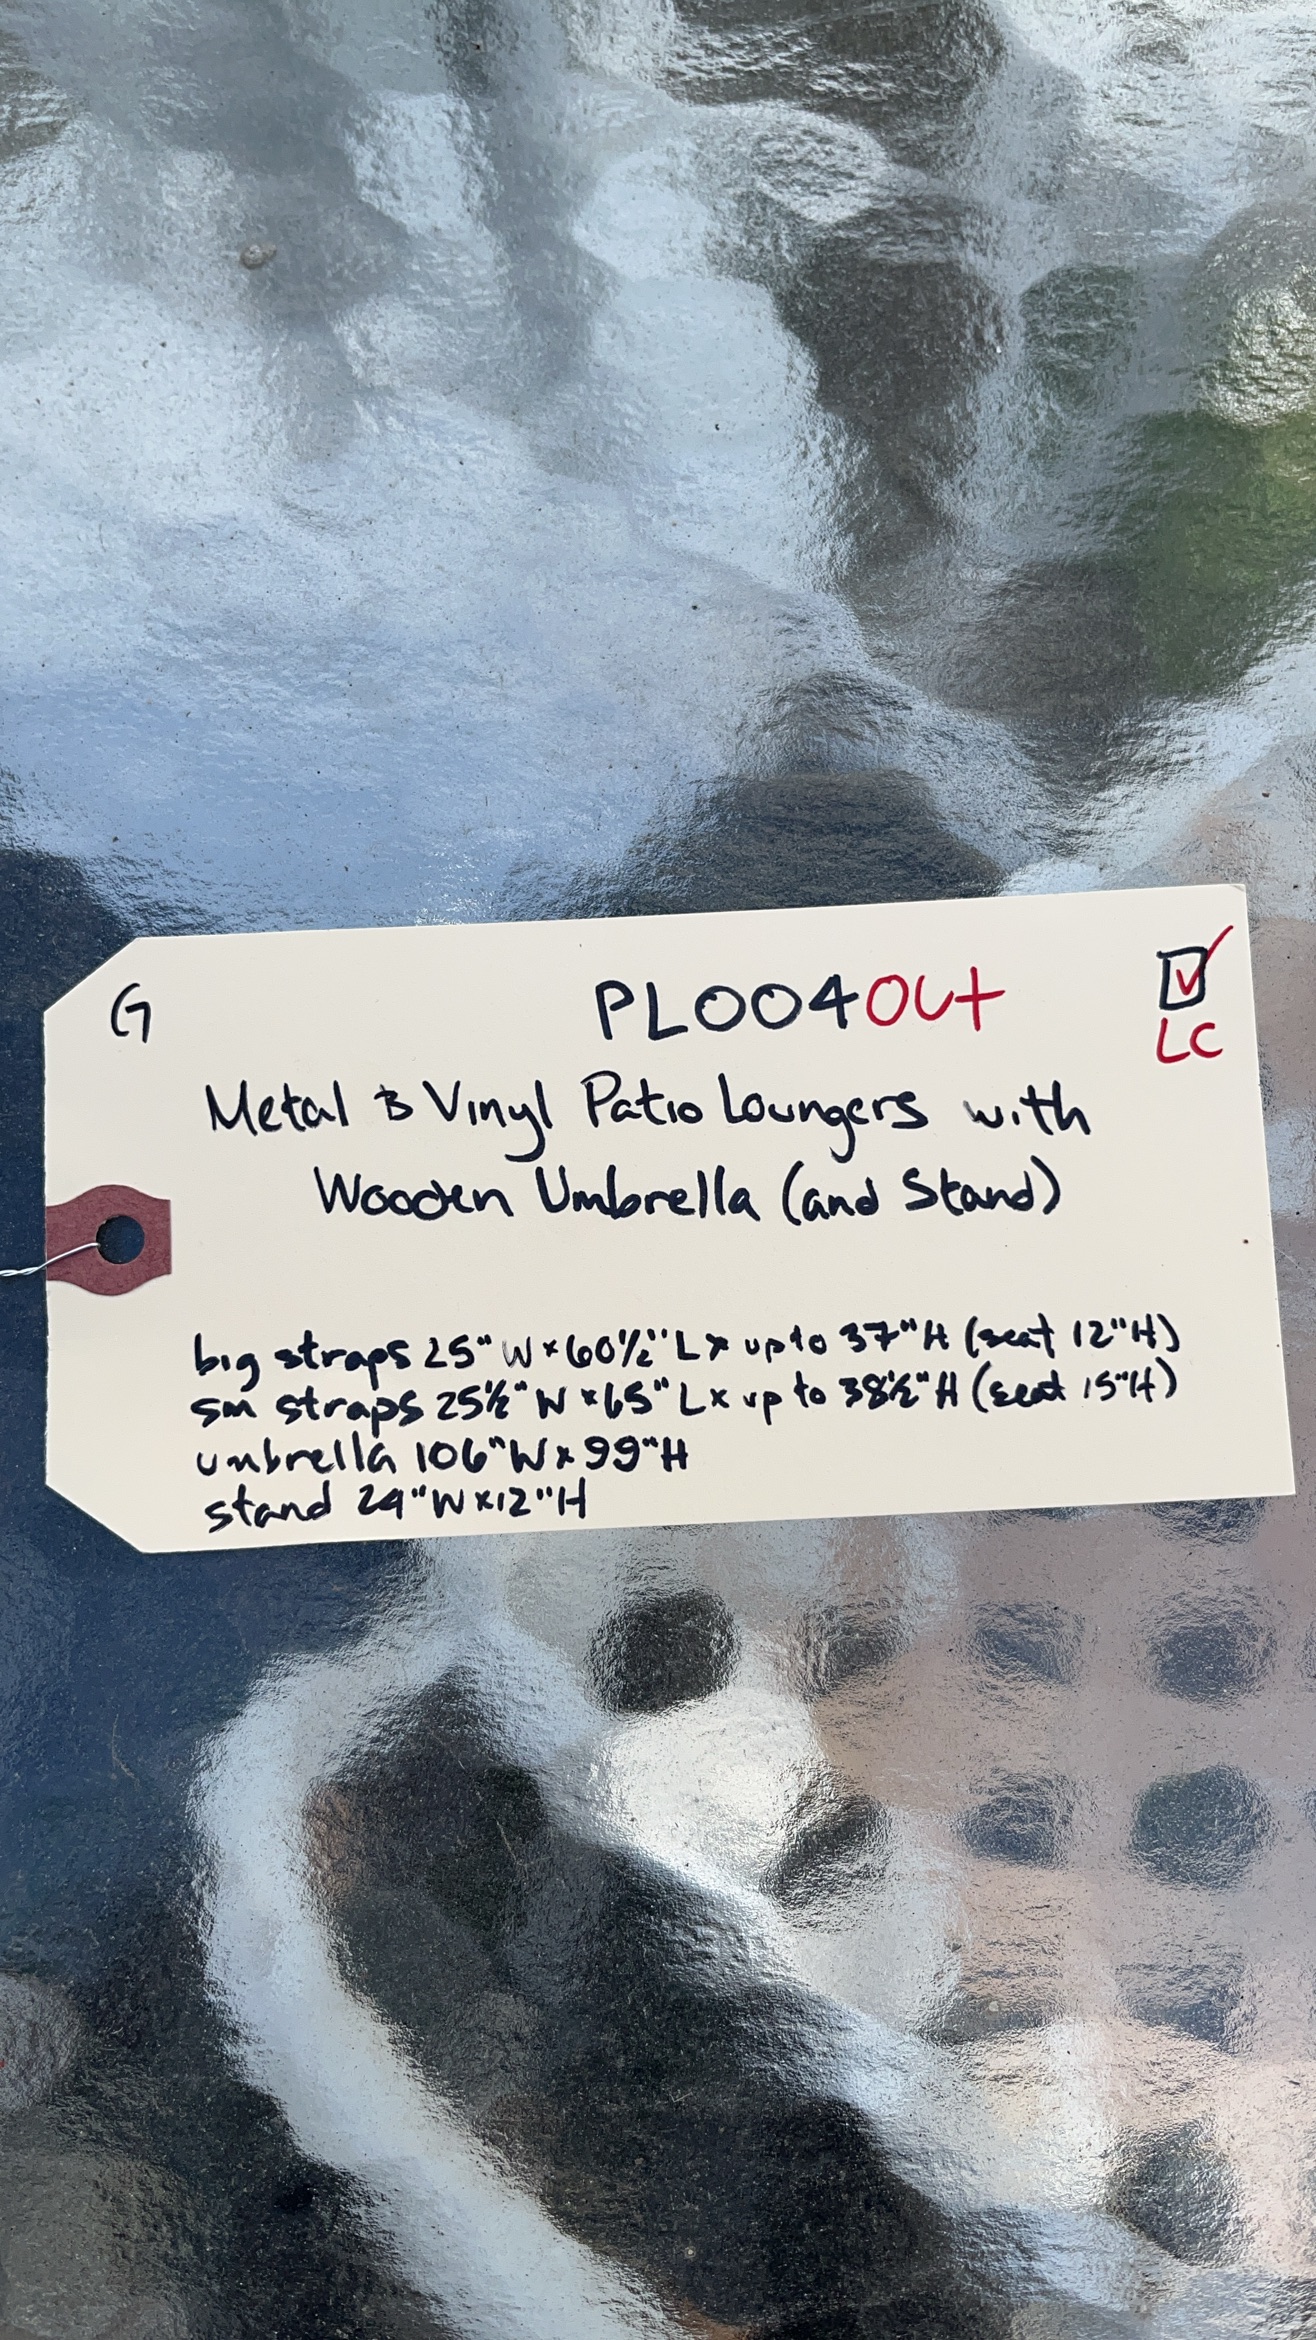 G PL004Out ☑
LC
Metal & Vinyl Patio Loungers with
Wooden Umbrella (and Stand)
big straps 25"W x 60½"L x up to 37"H (seat 12"H)
sm straps 25½"W x 65"L x up to 38½"H (seat 15"H)
umbrella 106"W x 99"H
stand 24"W x 12"H